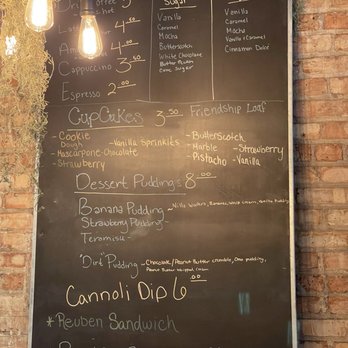 Drip Coffee
Hot
Latte 4.00
Cappuccino 3.50
Espresso 2.00
Sugar
Vanilla
Caramel
Mocha
Butterscotch
White Chocolate
Butter Pecan
Cane Sugar
Vanilla
Caramel
Mocha
Vanilla & Caramel
Cinnamon Dolce
CupCakes 3.50 Friendship Loaf
- Cookie Dough
- Vanilla Sprinkles
- Mascarpone-Chocolate
- Strawberry
- Butterscotch
- Marble - Strawberry
- Pistachio - Vanilla
Dessert Puddings 8.00
Banana Pudding - Nilla Wafers, Bananas,
Strawberry Pudding -
Teramisu -
"Dirt" Pudding - Chocolate/Peanut Butter crumble, Oreo pudding,
Peanut Butter whipped cream
Cannoli Dip 6.00
* Reuben Sandwich